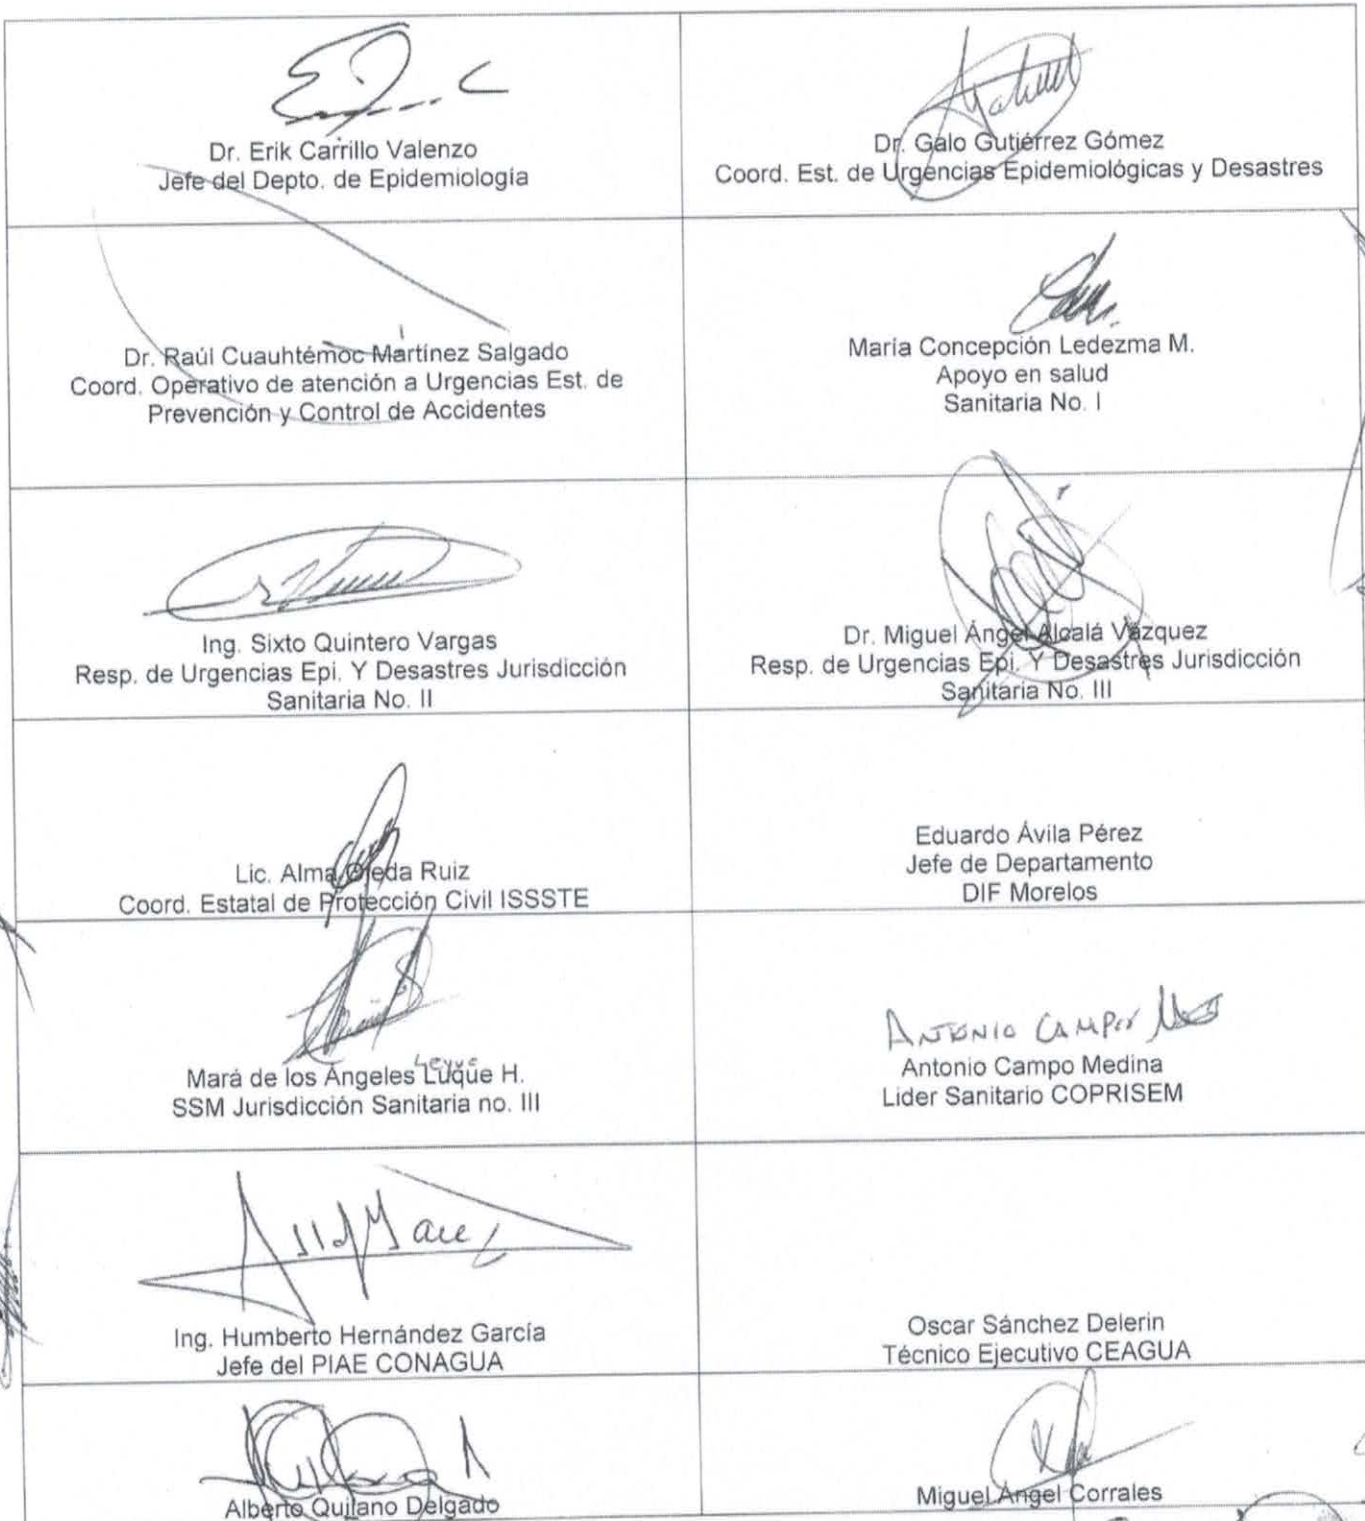 Dr. Erik Carrillo Valenzo
Jefe del Depto. de Epidemiología
Dr. Galo Gutiérrez Gómez
Coord. Est. de Urgencias Epidemiológicas y Desastres
Dr. Raúl Cuauhtémoc Martínez Salgado
Coord. Operativo de atención a Urgencias Est. de
Prevención y Control de Accidentes
María Concepción Ledezma M.
Apoyo en salud
Sanitaria No. I
Ing. Sixto Quintero Vargas
Resp. de Urgencias Epi. Y Desastres Jurisdicción
Sanitaria No. II
Dr. Miguel Ángel Alcalá Vázquez
Resp. de Urgencias Epi. Y Desastres Jurisdicción
Sanitaria No. III
Lic. Alma Ojeda Ruiz
Coord. Estatal de Protección Civil ISSSTE
Eduardo Ávila Pérez
Jefe de Departamento
DIF Morelos
Leyva
Mará de los Ángeles Luque H.
SSM Jurisdicción Sanitaria no. III
ANTONIO CAMPO
Antonio Campo Medina
Lider Sanitario COPRISEM
Ing. Humberto Hernández García
Jefe del PIAE CONAGUA
Oscar Sánchez Delerin
Técnico Ejecutivo CEAGUA
Alberto Quilano Delgado
Miguel Ángel Corrales